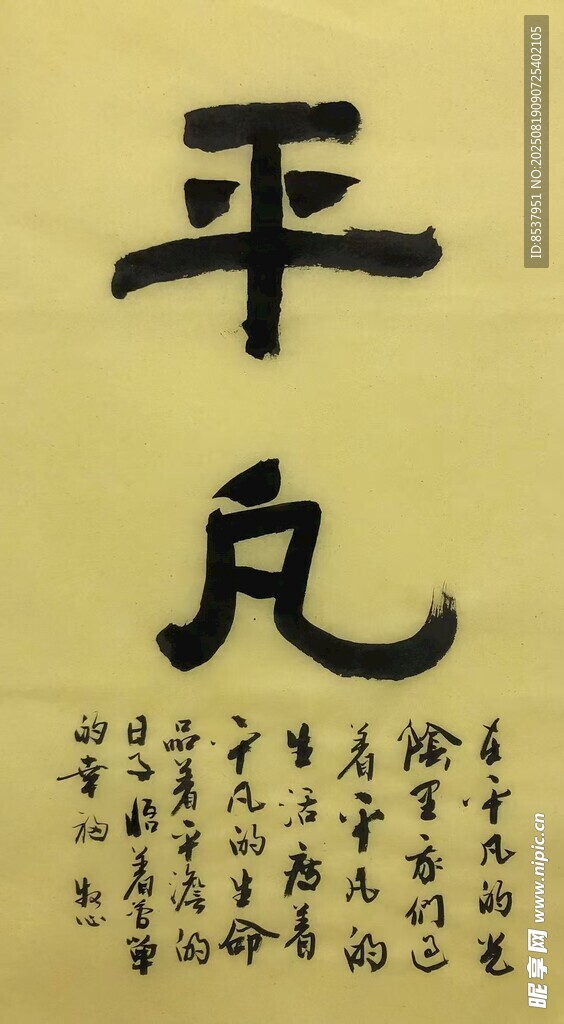 平凡
在平凡的光
陰里我們过
着平凡的
生活度着
平凡的生命
品着平澹的
日子悟着單
的幸福
ID:8537951 NO:20250819090725402105
昵享网 www.nipic.cn